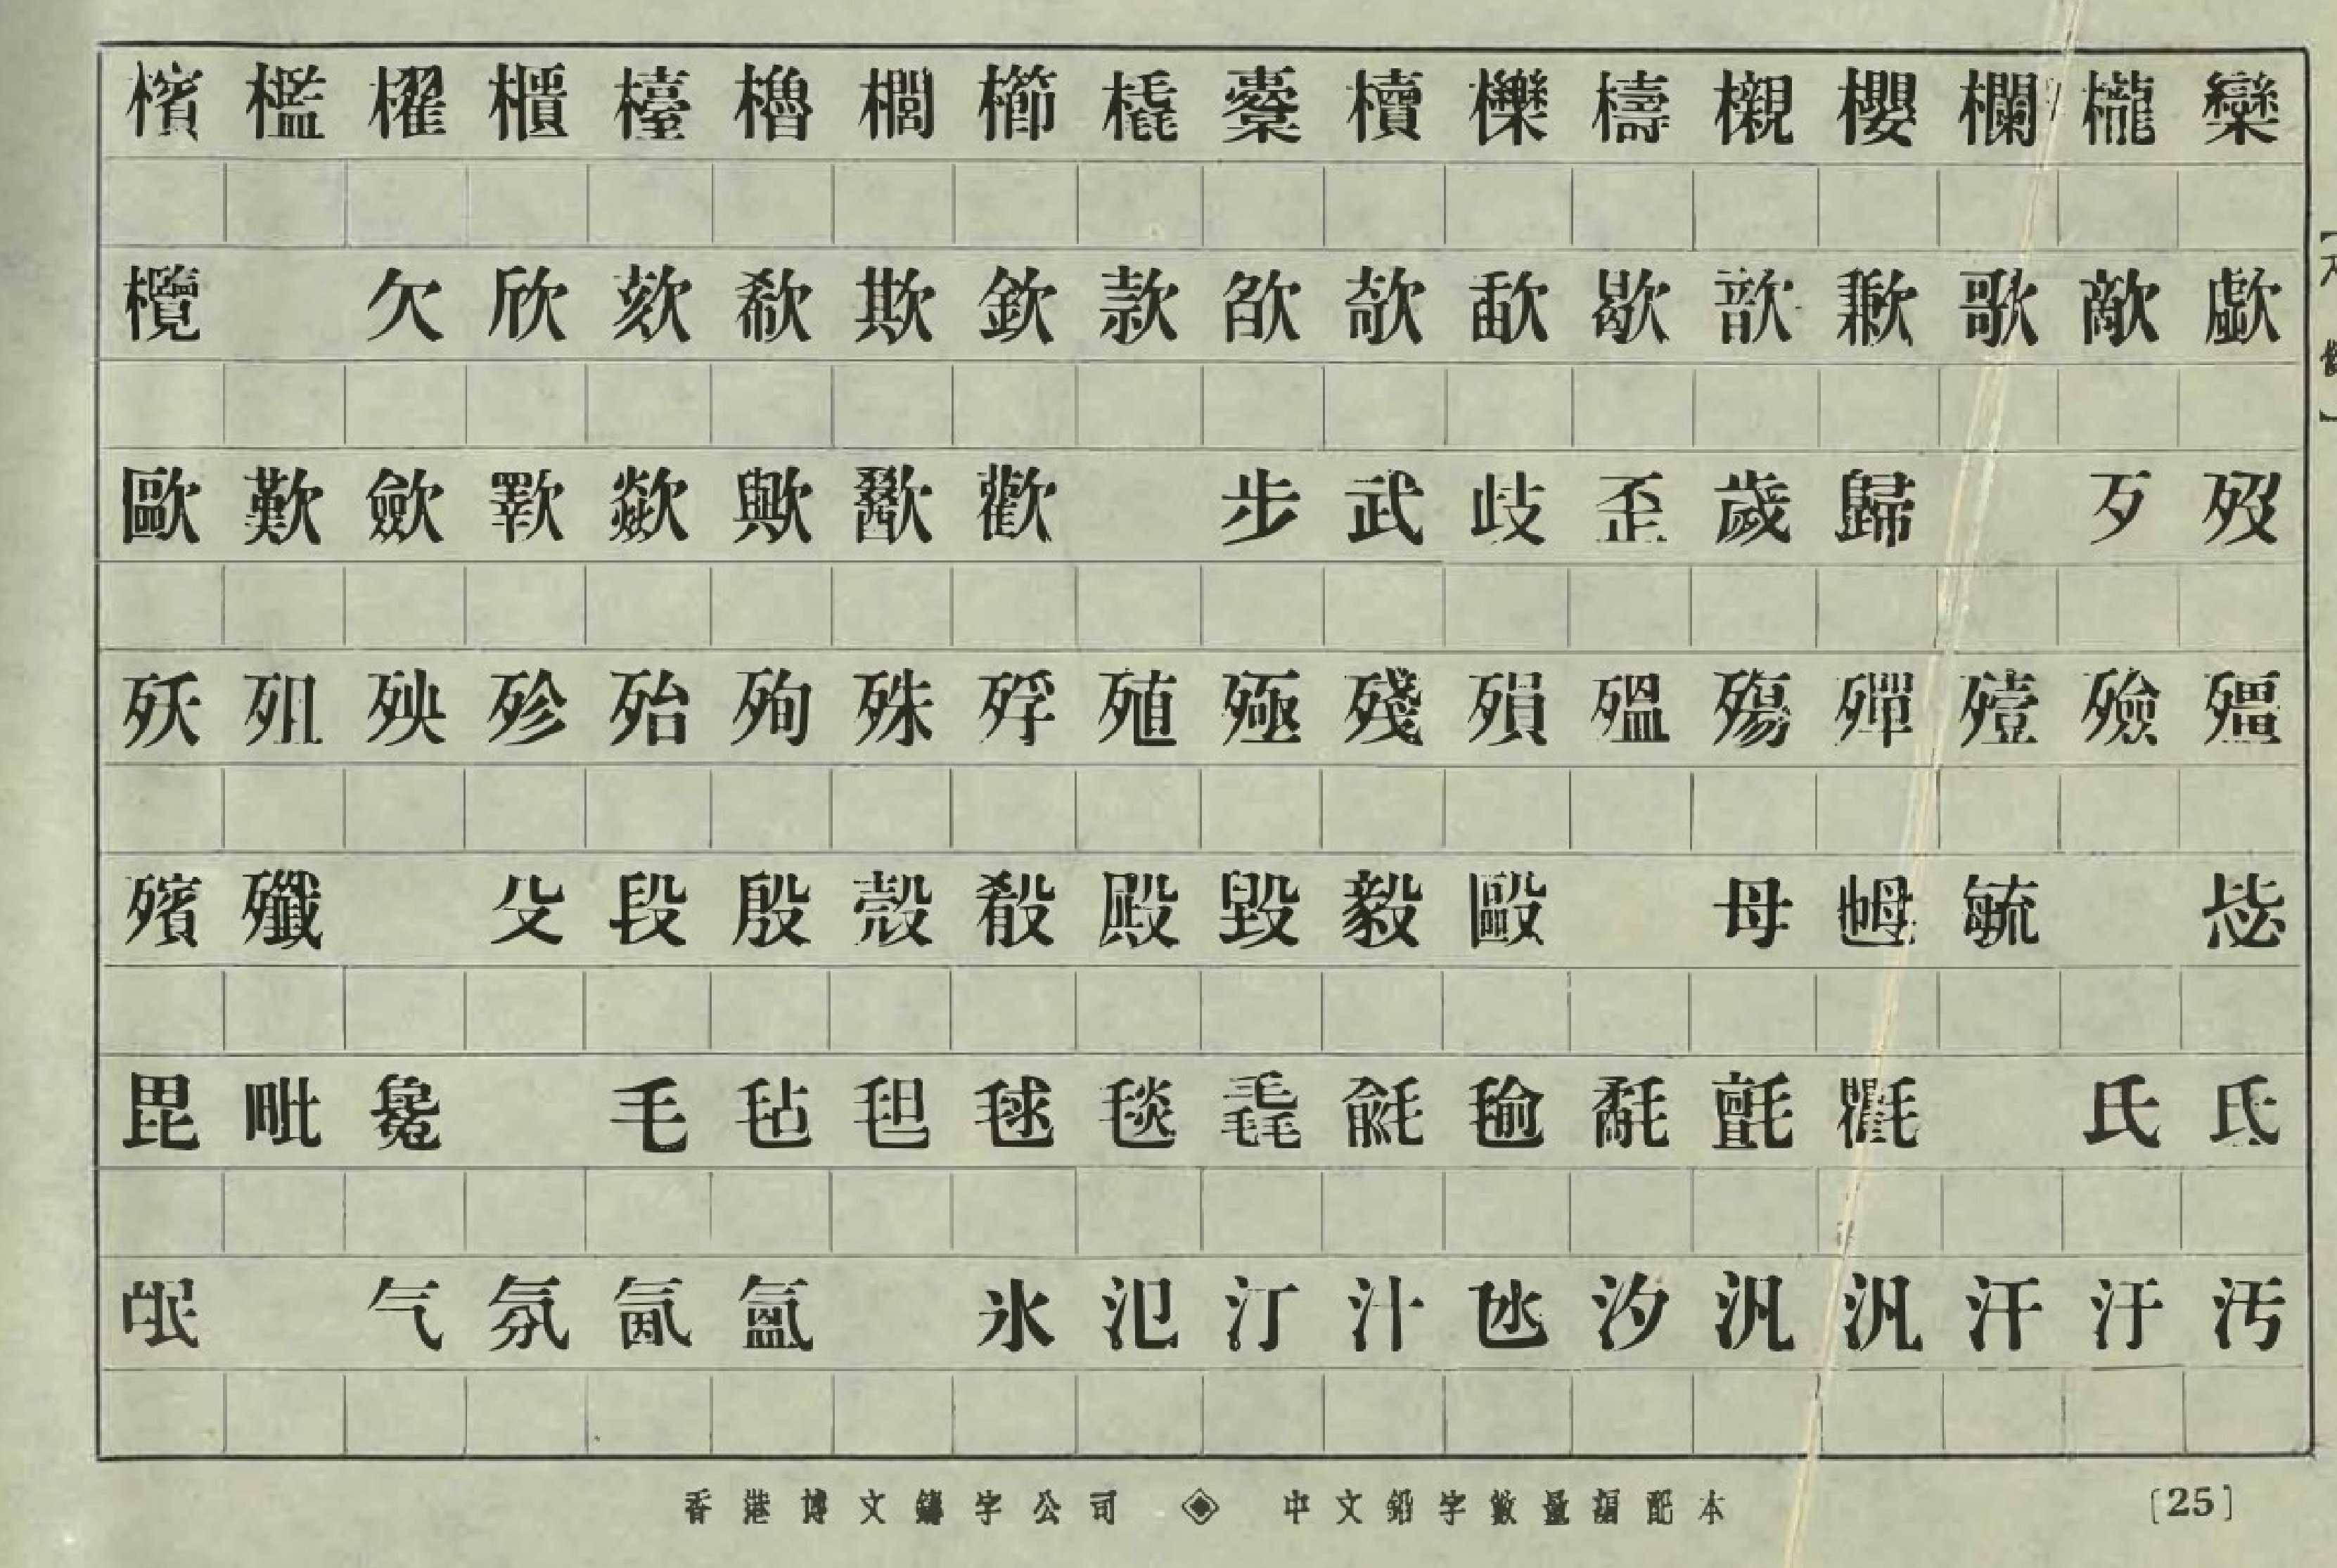 檳 檻 櫂 櫃 檯 櫓 櫊 櫛 橇 櫜 櫝 櫟 檮 櫬 櫻 欄 櫳 欒
欖 欠 欣 欬 欷 欺 欽 款 欿 欹 歃 歇 歆 歉 歌 歊 歔
歐 歎 歛 歝 歘 歟 歠 歡 步 武 歧 歪 歲 歸 歹 歿
殀 殂 殃 殄 殆 殉 殊 殍 殖 殛 殘 殞 殟 殤 殫 殪 殮 殭
殯 殲 殳 段 殷 殼 殽 殿 毀 毅 毆 母 毑 毓 毖
毘 毗 毚 毛 毡 毢 毬 毯 毳 毹 毺 氄 氈 氍 氏 氐
氓 气 氛 氤 氳 氷 氾 汀 汁 氹 汐 汎 汎 汗 汙 污
香港博文鑄字公司 ◈ 中文鉛字數量編配本 [25]